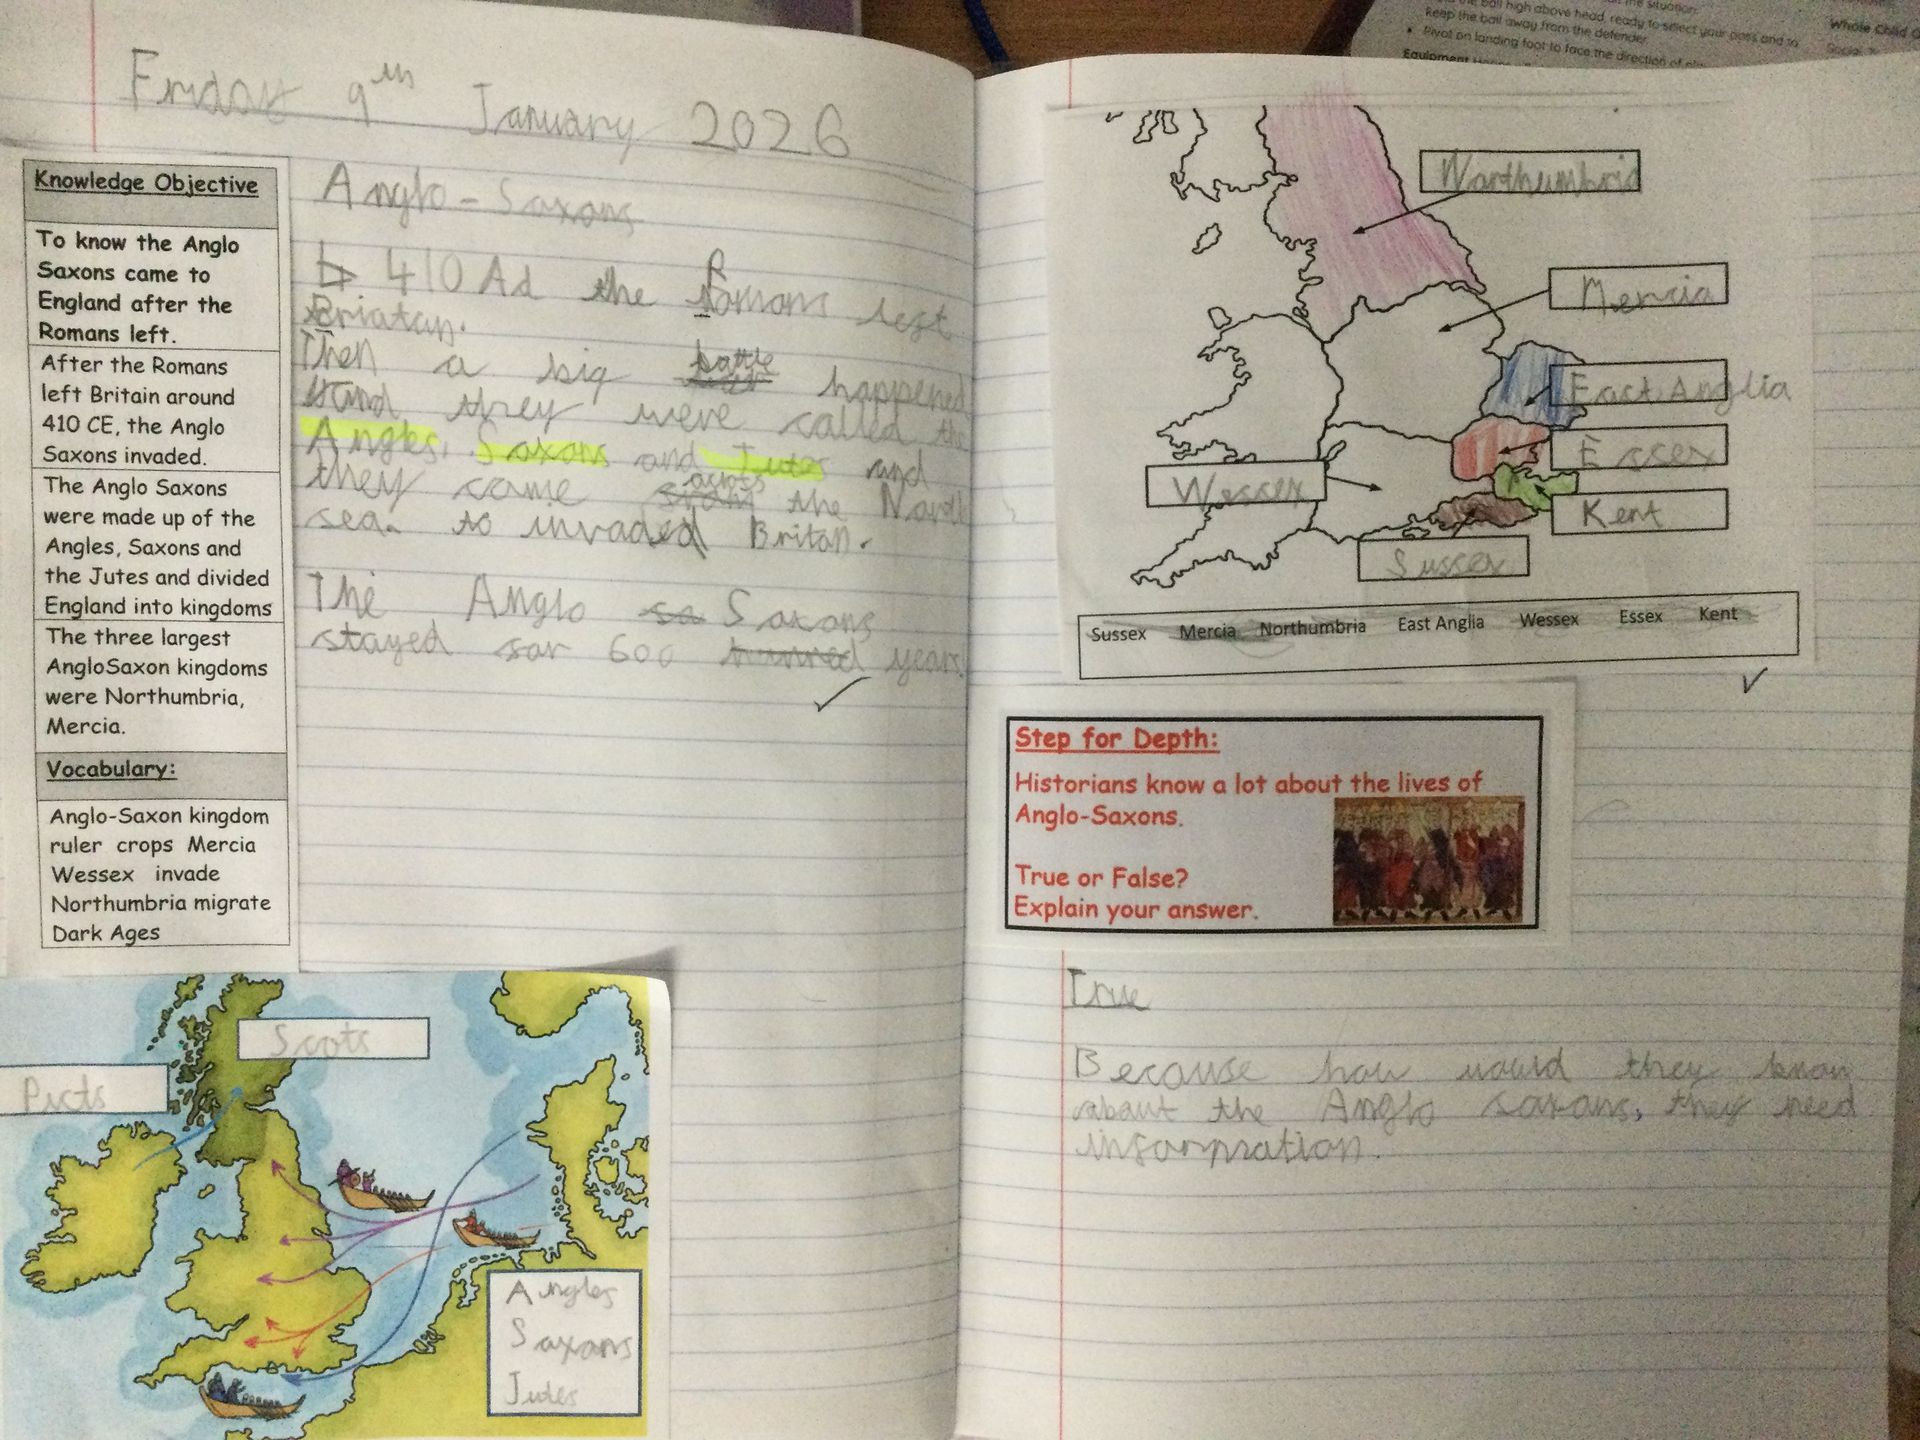 the situation.
the ball high above head, ready to select your pass and to
keep the ball away from the defender.
• Pivot on landing foot to face the direction of
Equipment
Whole Child
Social
Friday 9th January 2026
Knowledge Objective
To know the Anglo
Saxons came to
England after the
Romans left.
After the Romans
left Britain around
410 CE, the Anglo
Saxons invaded.
The Anglo Saxons
were made up of the
Angles, Saxons and
the Jutes and divided
England into kingdoms
The three largest
AngloSaxon kingdoms
were Northumbria,
Mercia.
Vocabulary:
Anglo-Saxon kingdom
ruler crops Mercia
Wessex invade
Northumbria migrate
Dark Ages
Anglo-Saxons
410 Ad the Romans left
Briatan.
Then a big battle happened
and they were called the
Angles, Saxons and Jutes and
they came across the North
sea. to invaded Britan.
The Anglo sa Saxons
stayed for 600 hunred years.
Scots
Picts
Angles
Saxons
Jutes
Northumbria
Mercia
East Anglia
Essex
Wessex
Kent
Sussex
Sussex Mercia Northumbria East Anglia Wessex Essex Kent
Step for Depth:
Historians know a lot about the lives of
Anglo-Saxons.
True or False?
Explain your answer.
True
Because how would they know
about the Anglo saxons, they need
information.